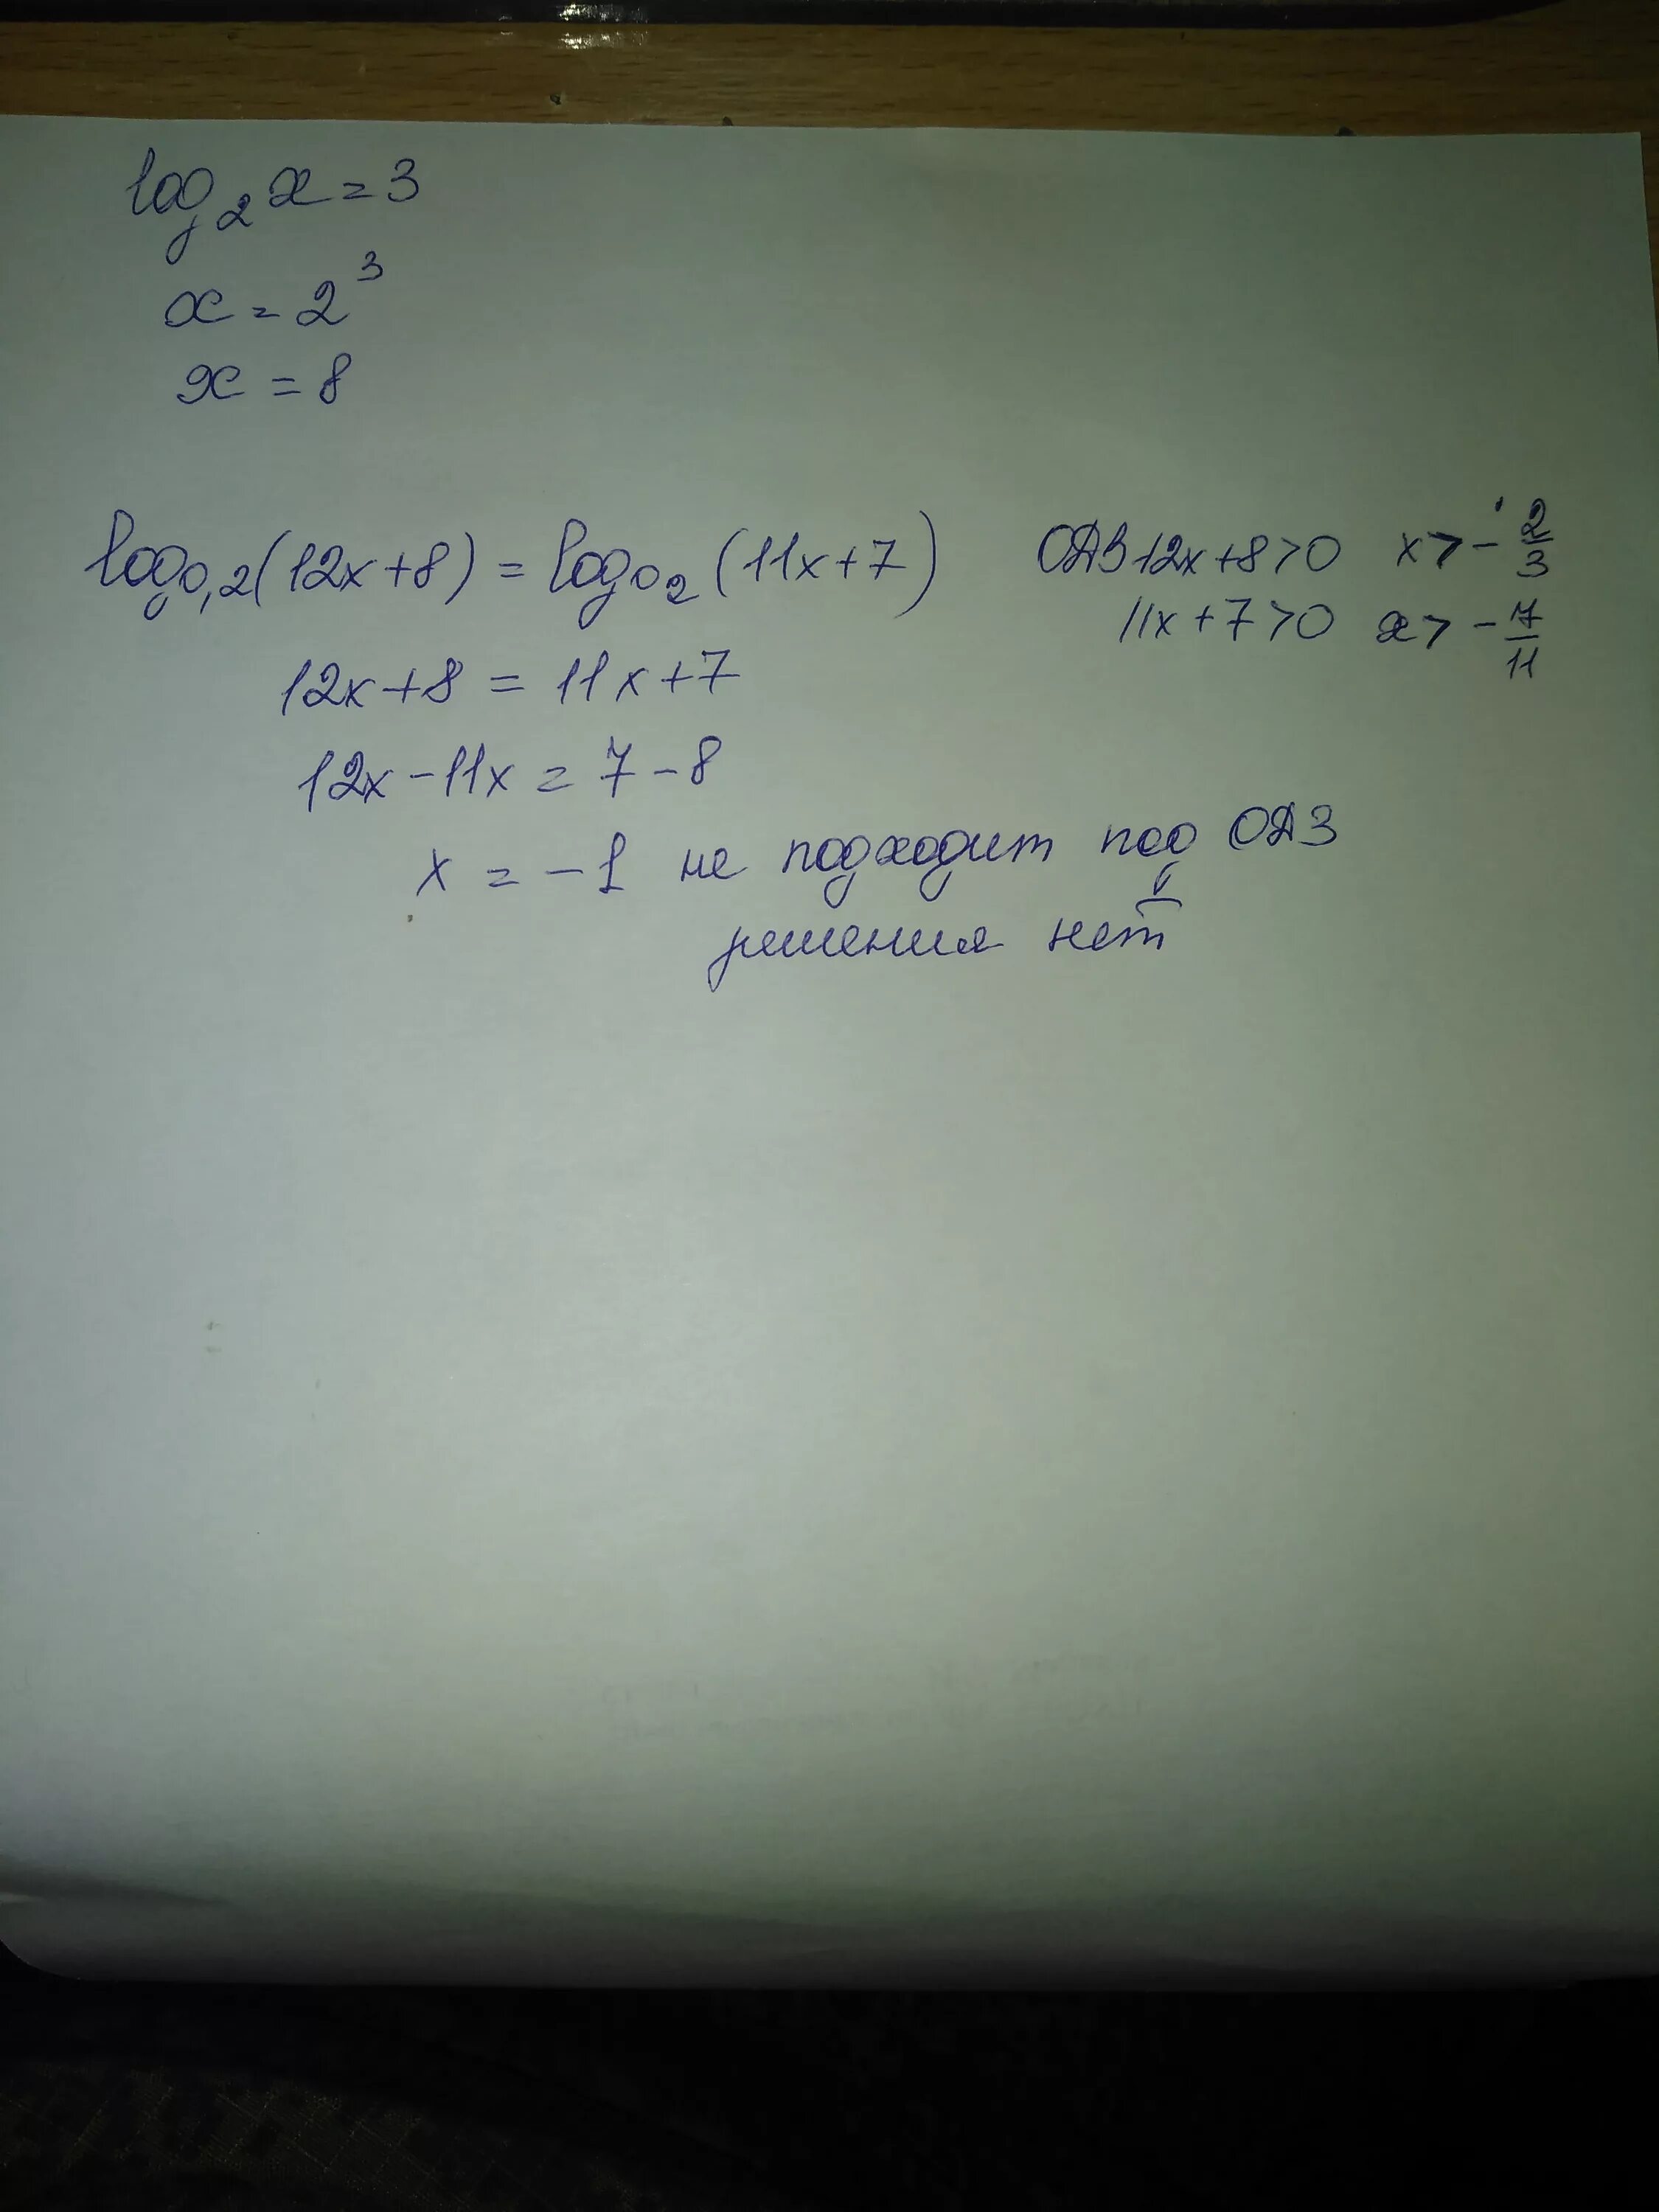 log₂ x = 3
x = 2³
x = 8
log₀,₂(12x+8) = log₀₂(11x+7) ОДЗ 12x+8>0 x>-2/3
11x+7>0 x>-7/11
12x+8 = 11x+7
12x-11x = 7-8
x = -1 не подходит под ОДЗ
решения нет